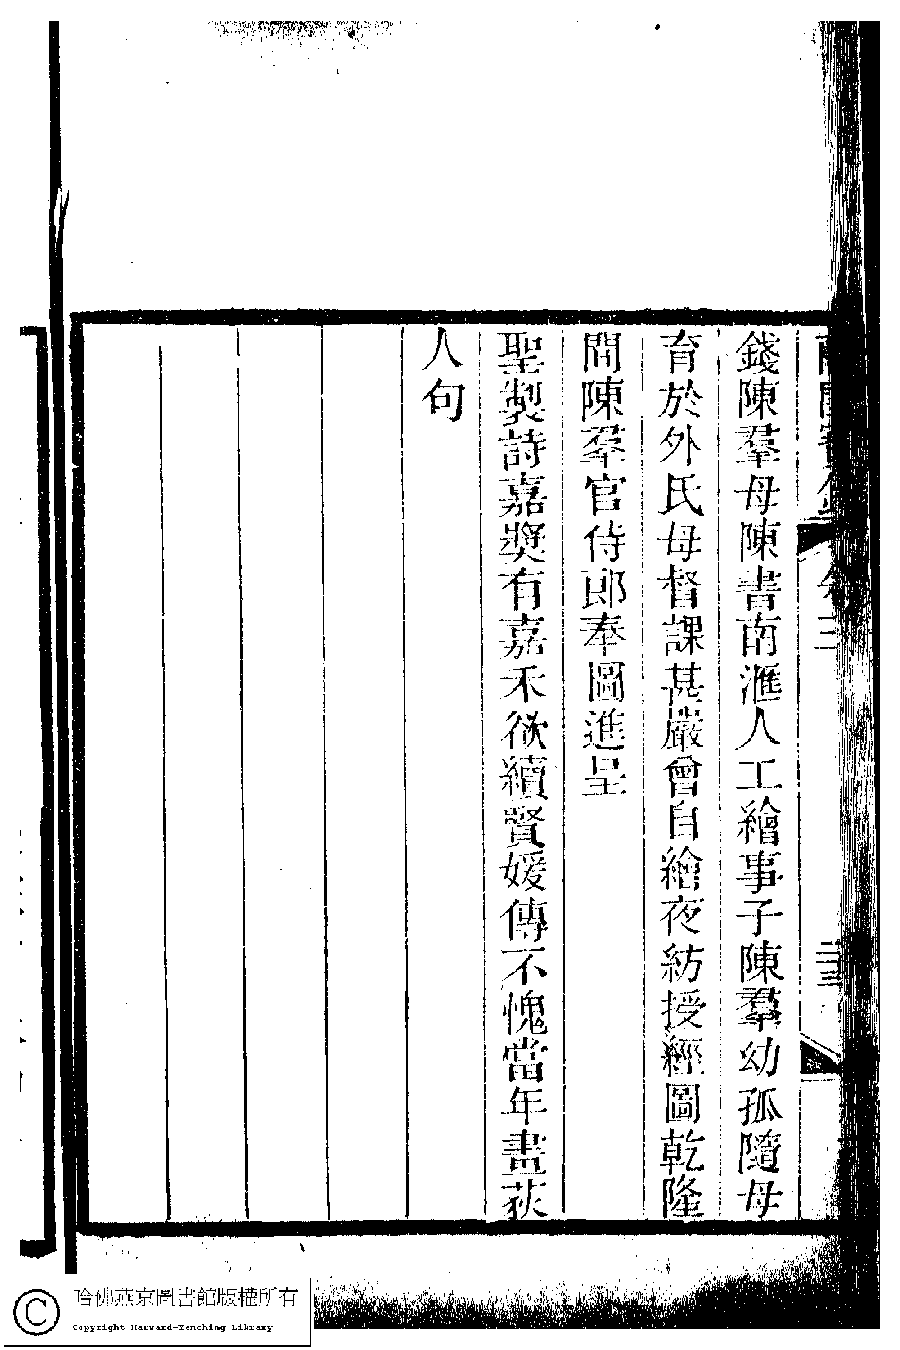 錢陳羣母陳書南滙人工繪事子陳羣幼孤隨母
育於外氏母督課甚嚴曾自繪夜紡授經圖乾隆
間陳羣官侍郎奉圖進呈
聖製詩嘉獎有嘉禾欲續賢媛傳不愧當年畫荻
人句
哈佛燕京圖書館版權所有
Copyright Harvard-Yenching Library